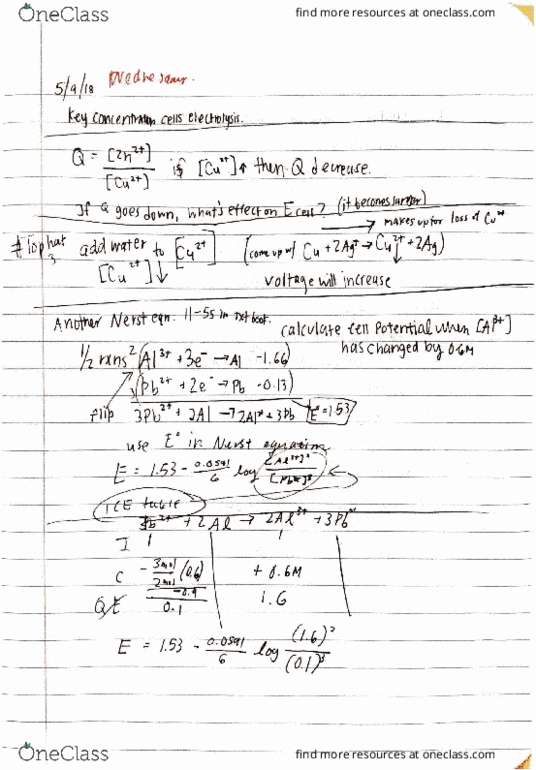 OneClass
find more resources at oneclass.com
5/9/18 Wednesday.
Key concentration cells electrolysis.
Q = [Zn²⁺] / [Cu²⁺] if [Cu²⁺]↑ then Q decrease.
If Q goes down, what's effect on Ecell? (it becomes larger)
→ makes up for loss of Cu²⁺
# Tophat 3 add water to [Cu²⁺] (come up w/ Cu + 2Ag⁺ → Cu²⁺ + 2Ag)
[Cu²⁺]↓ ↓ voltage will increase
Another Nerst eqn. 11-55 in txt book.
calculate cell potential when [Al³⁺] has changed by 0.6M
1/2 rxns 2(Al³⁺ + 3e⁻ → Al -1.66)
(Pb²⁺ + 2e⁻ → Pb -0.13)
flip 3Pb²⁺ + 2Al → 2Al³⁺ + 3Pb E°=1.53
use E° in Nerst equation
E = 1.53 - 0.0591/6 log [Al³⁺]²/[Pb²⁺]³
ICE table
3Pb²⁺ + 2Al → 2Al³⁺ + 3Pb
I 1 1
C -3mol/2mol (0.6) + 0.6M
-0.9
E 0.1 1.6
E = 1.53 - 0.0591/6 log (1.6)²/(0.1)³
OneClass
find more resources at oneclass.com